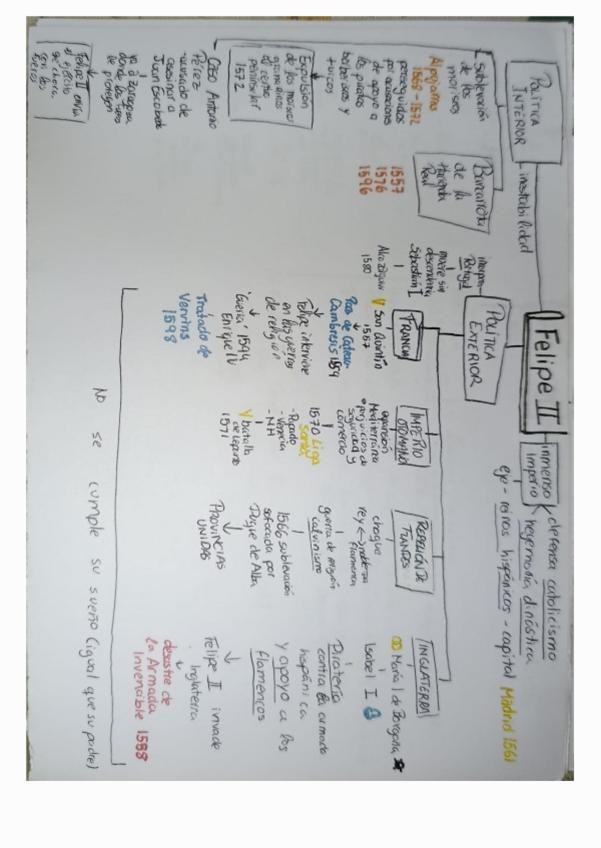 Felipe II
inmenso
imperio
defensa catolicismo
hegemonía dinástica
eje - reinos hispánicos - capital Madrid 1561
POLÍTICA
INTERIOR
inestabilidad
Sublevación
de los
moriscos
Alpujarras
1568-1572
perseguidos
por acusaciones
de apoyo a
los piratas
berberiscos y
turcos
Expulsión
de los moriscos
al resto
peninsular
1572
Caso Antonio
Pérez
acusado de
asesinar a
Juan Escobedo
va a Zaragoza
donde los fueros
le protegen
Felipe II envía
el ejército
con los
fueros
Bancarrota
de la
Hacienda
Real
1557
1576
1596
POLÍTICA
EXTERIOR
Portugal
muere sin
descendencia
Sebastián I
1580
FRANCIA
V San Quintín
1557
Paz de Cateau-
Cambresis 1559
Felipe interviene
en las guerras
de religión
Guerra 1594
Enrique IV
Tratado de
Vervins
1598
IMPERIO
OTOMANO
expansión
Mediterránea
perjuicios de
seguridad y
comercio
1570 Liga
Santa
- Papado
- Venecia
- MH
V batalla
de Lepanto
1571
REBELIÓN DE
FLANDES
choque
rey <-> nobleza
flamenca
guerra de religión
calvinismo
1566 sublevación
sofocada por
Duque de Alba
PROVINCIAS
UNIDAS
INGLATERRA
María I de
Isabel I
Piratería
contra la armada
hispánica
y apoyo a los
flamencos
Felipe II invade
Inglaterra
desastre de
la Armada
Invencible 1588
No se cumple su sueño (igual que su padre)